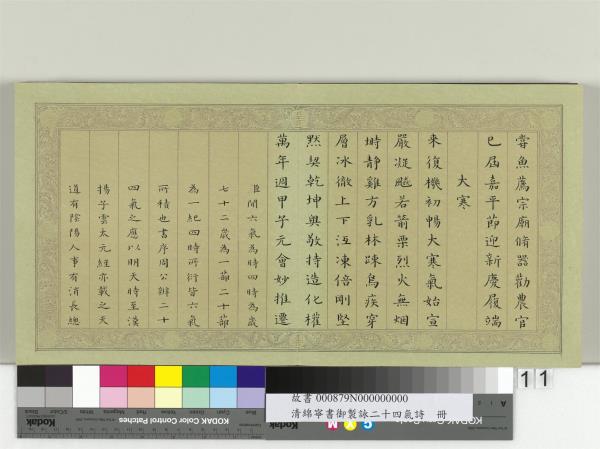 嘗魚薦宗廟脩器勸農官
已届嘉平節迎新慶履端
大寒
來復機初暢大寒氣始宣
嚴凝颷若箭栗烈火無烟
塒靜雞方乳林踈鳥疾穿
層冰徹上下沍凍倍剛堅
默契乾坤奧敬持造化權
萬年週甲子元會妙推遷
臣聞六氣為時四時為歲
七十二歲為一蔀二十蔀
為一紀四時所衍皆六氣
所積也書序周公辨二十
四氣之應以明天時至漢
揚子雲太元經亦載之天
道有陰陽人事有消長總
11
故書 000879N000000000
清綿寧書御製詠二十四氣詩 冊
KODAK Color Control Patches
Blue
Cyan
Green
Yellow
Red
Magenta
White
3/Color
Black
C Y M
Kodak
A